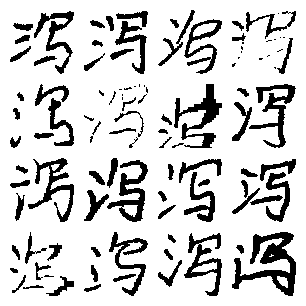 泻泻泻泻
泻泻泻泻
泻泻泻泻
泻泻泻泻